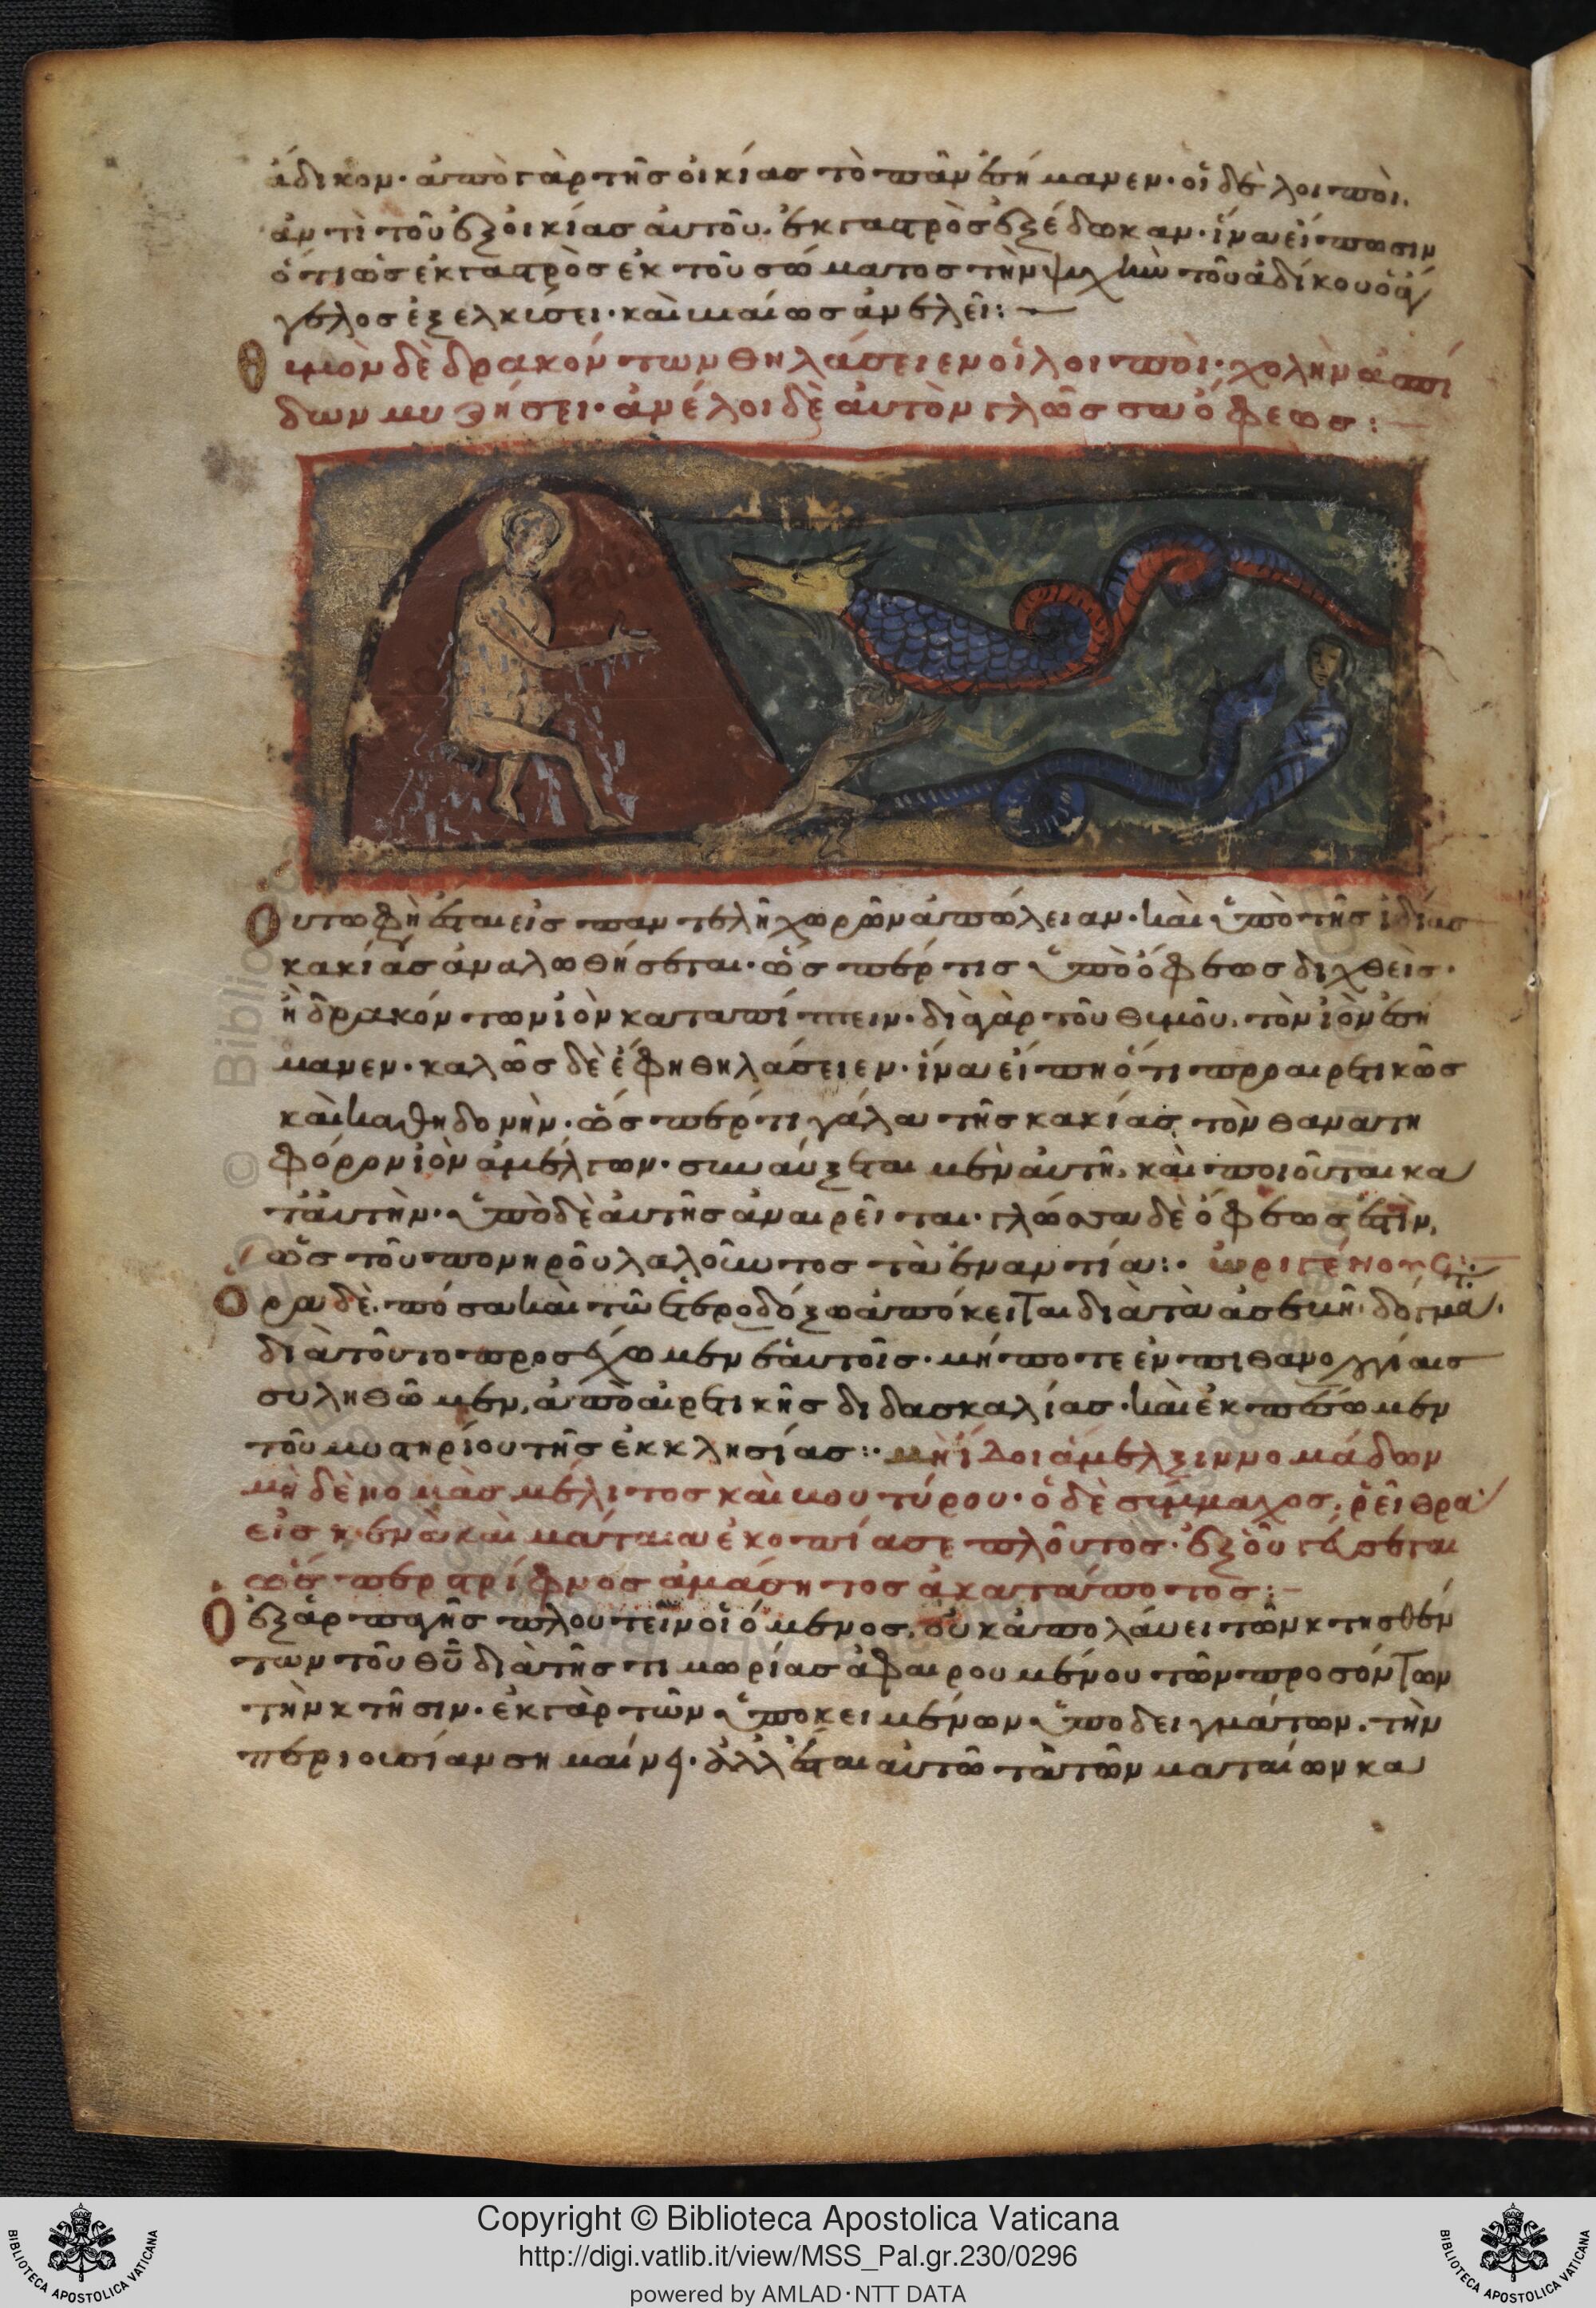 ἄδικον· ἀπὸ γὰρ τῆς οἰκίας τὸ πᾶν ἐσήμανεν· οἱ δὲ λοιποὶ,
ἀντὶ τοῦ ἐξ οἰκίας αὐτοῦ, ἐκ γαστρὸς ἐξέδωκαν· ἵνα εἴπωσιν
ὅτι ὡς ἐκ γαστρὸς ἐκ τοῦ σώματος τὴν ψυχὴν τοῦ ἀδίκου ὁ ἄγ
γελος ἐξελκύσει· καὶ βιαίως ἀνελεῖ:
θυμὸν δὲ δρακόντων θηλάσειεν οἱ λοιποὶ· χολὴν ἀσπί
δων μυζήσει· ἀνέλοι δὲ αὐτὸν γλῶσσα ὄφεως:
Οὕτω φησὶν εἰς παντελῆ χωρῶν ἀπώλειαν· καὶ ὑπὸ τῆς ἰδίας
κακίας ἀναλωθήσεται· ὥσπερ τις ὑπὸ ὄφεως διχθεὶς·
ἢ δρακόντων ἰὸν καταπίπτειν· διὰ γὰρ τοῦ θυμοῦ, τὸν ἰὸν ἐσή
μανεν· καλῶς δὲ ἔφη θηλάσειεν· ἵνα εἴπη ὅτι προαιρετικῶς
καὶ καθηδονὴν· ὥσπερ τι γάλα τῆς κακίας τὸν θανατη
φόρον ἰὸν ἀμέλγων· συναύξεται μὲν αὐτῆ, καὶ ποιοῦται κα
ταύτην· ὑπὸ δὲ αὐτῆς ἀναιρεῖται· γλῶσσα δὲ ὄφεως ἐστὶν,
ὡς τοῦ πονηροῦ λαλοῦντος τὰ ἐναντία:· ὠριγένους:
Ὅρα δὲ, πόσα καὶ τῶ ἑτεροδόξω ἀπόκειται διὰ τὰ ἀσεβῆ δόγματα·
διὰ τοῦτο προσέχωμεν ἑαυτοῖς· μήποτε ἐν πιθανολογίαις
συληθῶμεν, ἀπὸ αἱρετικῆς διδασκαλίας· καὶ ἐκπέσωμεν
τοῦ μυστηρίου τῆς ἐκκλησίας:· μὴ ἴδοι ἄμελξιν νομάδων
μὴ δὲ νομὰς μέλιτος καὶ βουτύρου· ὁ δὲ σύμμαχος, ῥεῖθρα
εἰς κενὰ καὶ μάταια ἐκοπίασε πλοῦτος· ἐξ οὗ γεύσεται
ὥσπερ στρίφνος ἀμάσητος ἀκατάποτος:
Ὁ ἐξ ἁρπαγῆς πλουτεῖν οἰόμενος, οὐκ ἀπολαύει τῶν κτησθέν
των τοῦ θῦ διὰ τῆς τιμωρίας ἀφαιρουμένου τῶν προσόντων
τὴν κτῆσιν· ἐκ γὰρ τῶν ὑποκειμένων ὑποδειγμάτων, τὴν
περιουσίαν σημαίνει· ἀλλ ἔσται αὐτῶ τὰ τῶν ματαίων κα
Copyright © Biblioteca Apostolica Vaticana
http://digi.vatlib.it/view/MSS_Pal.gr.230/0296
powered by AMLAD·NTT DATA
BIBLIOTECA APOSTOLICA VATICANA
BIBLIOTECA APOSTOLICA VATICANA